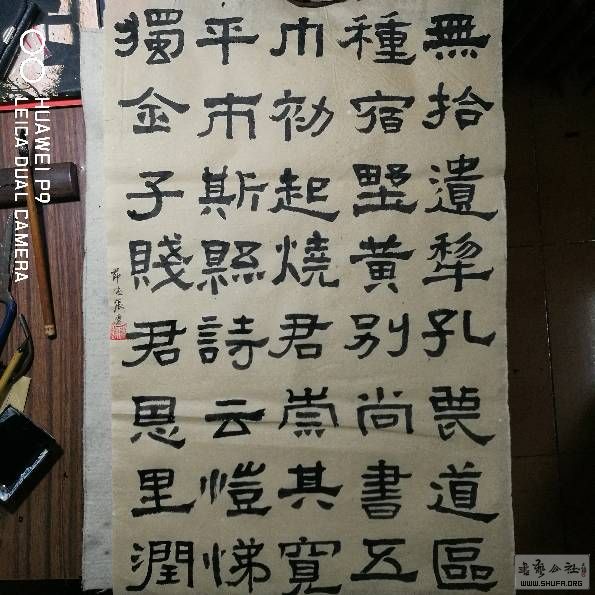 無拾遺犂孔道區
種宿墅黃別尚書五
巾初起燒君崇其寬
平市斯縣詩云愷悌
獨金子賤君恩里潤
節臨張遷
HUAWEI P9
LEICA DUAL CAMERA
書藝公社
WWW.SHUFA.ORG